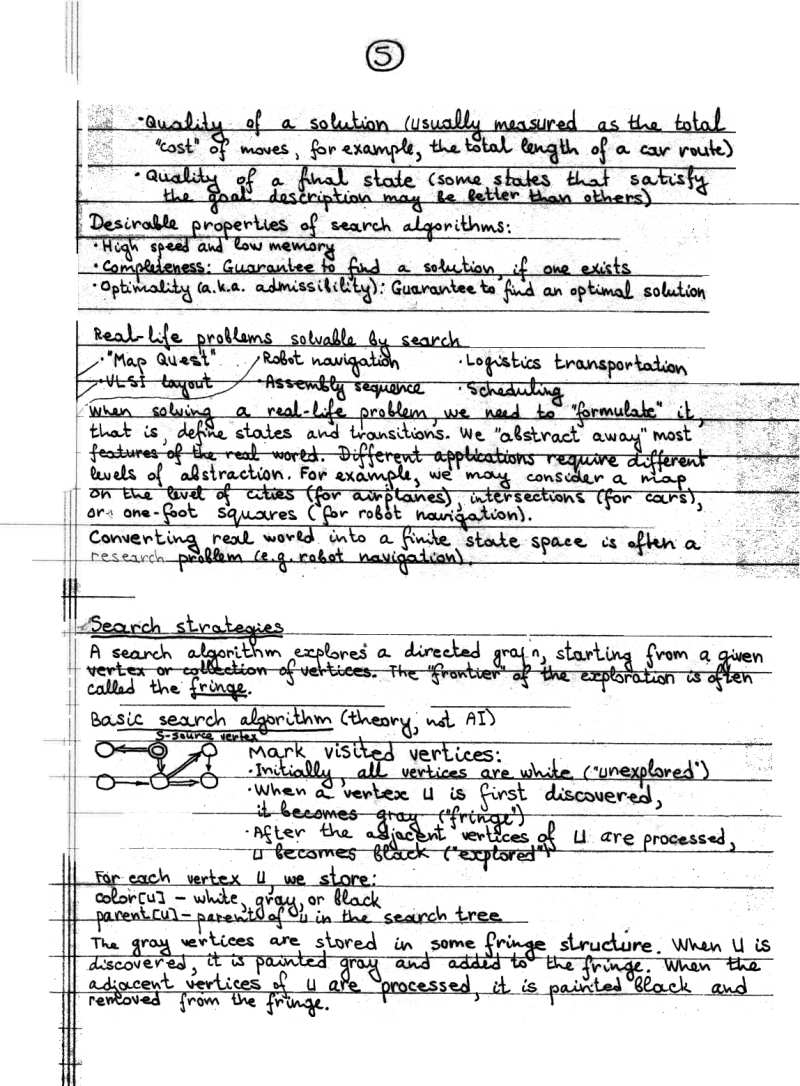 5
·Quality of a solution (usually measured as the total
"cost" of moves, for example, the total length of a car route)
·Quality of a final state (some states that satisfy
the goal description may be better than others)
Desirable properties of search algorithms:
·High speed and low memory
·Completeness: Guarantee to find a solution, if one exists
·Optimality (a.k.a. admissibility): Guarantee to find an optimal solution
Real-life problems solvable by search
·"Map Quest" ·Robot navigation ·Logistics transportation
·VLSI layout ·Assembly sequence ·Scheduling
When solving a real-life problem, we need to "formulate" it,
that is, define states and transitions. We "abstract away" most
features of the real world. Different applications require different
levels of abstraction. For example, we may consider a map
on the level of cities (for airplanes), intersections (for cars),
or one-foot squares (for robot navigation).
Converting real world into a finite state space is often a
research problem (e.g. robot navigation).
Search strategies
A search algorithm explores a directed graph, starting from a given
vertex or collection of vertices. The "frontier" of the exploration is often
called the fringe.
Basic search algorithm (theory, not AI)
S-source vertex
Mark visited vertices:
·Initially, all vertices are white ("unexplored")
·When a vertex u is first discovered,
it becomes gray ("fringe")
·After the adjacent vertices of u are processed,
u becomes black ("explored")
For each vertex u, we store:
color[u] – white, gray, or black
parent[u] – parent of u in the search tree
The gray vertices are stored in some fringe structure. When u is
discovered, it is painted gray and added to the fringe. When the
adjacent vertices of u are processed, it is painted black and
removed from the fringe.